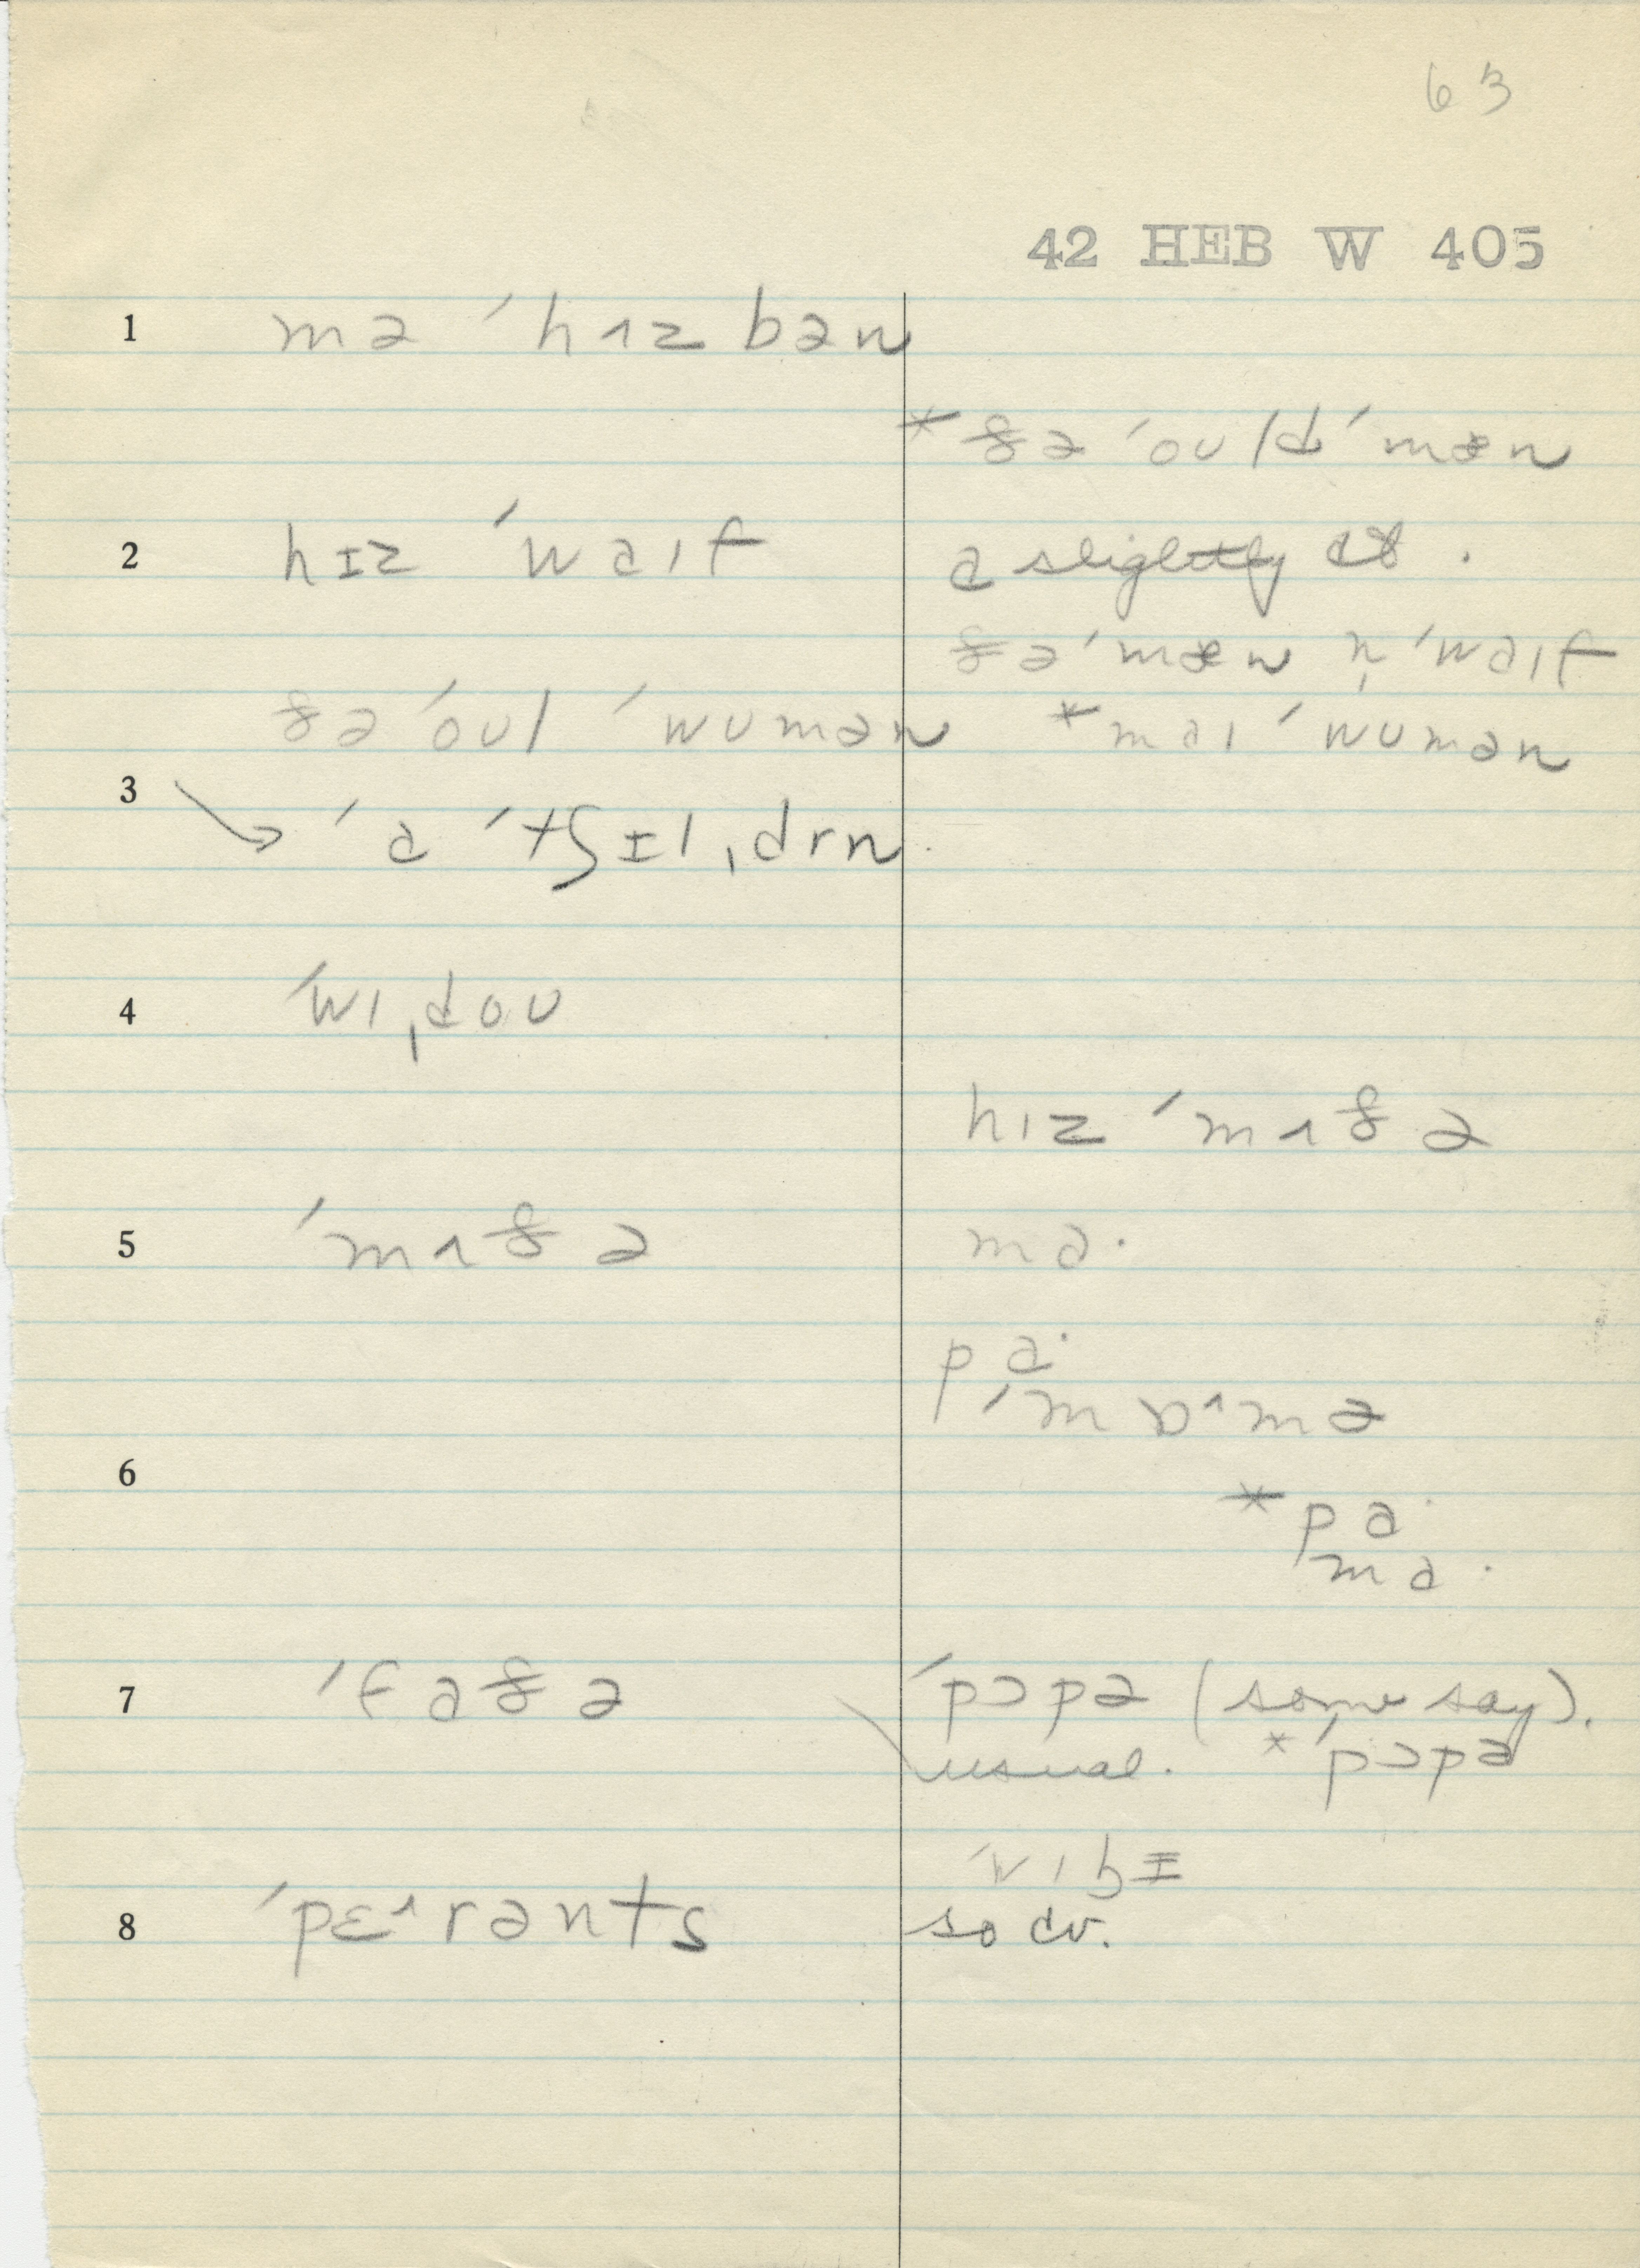 63
42 HEB W 405
1 mə ˈhʌz bən
*ðə ˈoʊld ˈmæn
2 hɪz ˈwaɪf
a slightly
ðə ˈmæn n̩ ˈwaɪf
ðə ˈoʊl ˈwʊmən *maɪ ˈwʊmən
3 ˈa ˈtʃɪlˌdrn
4 ˈwɪˌdoʊ
hɪz ˈmʌðə
5 ˈmʌðə ma·
pa·
ˈmɒ^mə
6
*pa·
ma·
7 ˈfaðə ˈpɔpə (some say).
usual. *ˈpɔpə
8 ˈpɛ^rənts
so cv.